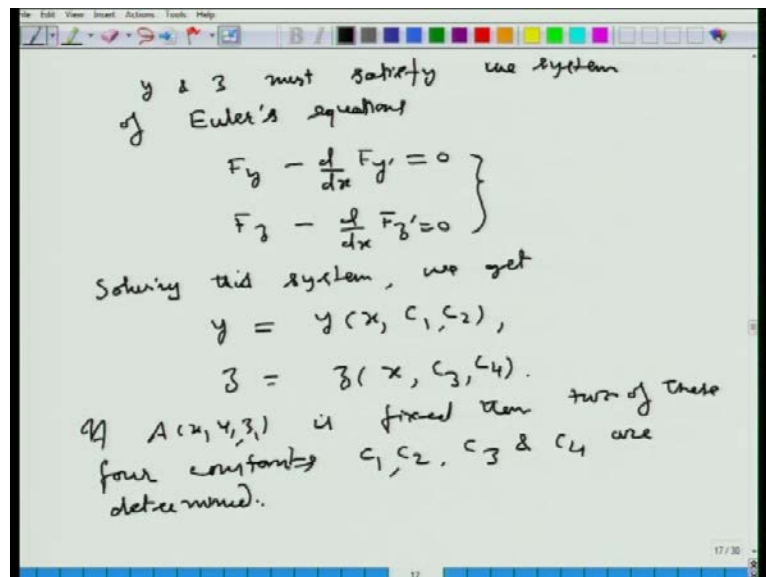 File Edit View Insert Actions Tools Help
y & z must satisfy the system
of Euler's equations
F_y - d/dx F_y' = 0
F_z - d/dx F_z' = 0
Solving this system, we get
y = y(x, c_1, c_2),
z = z(x, c_3, c_4).
If A(x, y, z_1) is fixed then two of these
four constants c_1, c_2, c_3 & c_4 are
determined.
17/30
17